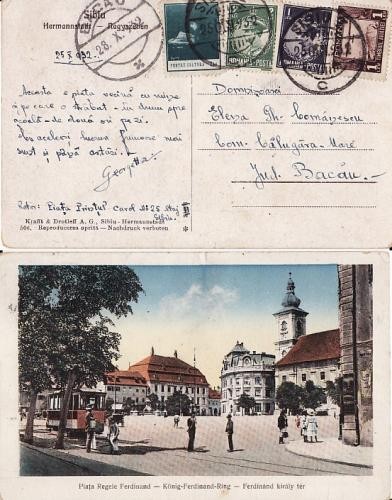 Sibiu
Hermannstadt — Nagyszeben
25 X 932.
BACĂU
28. X. 932
SIBIU
25.OCT.932
SIBIU
ROMÂNIA POSTA
ROMÂNIA-POSTA
Acosta e piața vecină cu mine
pe care o străbat — în drum spre
acolo — de două ori pe zi.
Tot aceleași lucruri frumoase mai
sunt și până astăzi.
Georgetta
Domnișoarei
Elena Gh. Comănescu
Com. Călugăra-Mare
Jud. Bacău
Piața Prințul Carol No 25 etaj II
Sibiu
Krafft & Drotleff A. G., Sibiu-Hermannstadt
504. Reproducerea oprită — Nachdruck verboten
Piața Regele Ferdinand — König-Ferdinand-Ring — Ferdinánd király tér